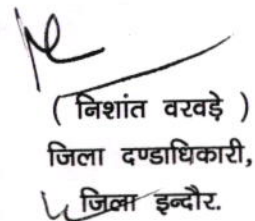 ( निशांत वरवड़े )
जिला दण्डाधिकारी,
जिला इन्दौर.